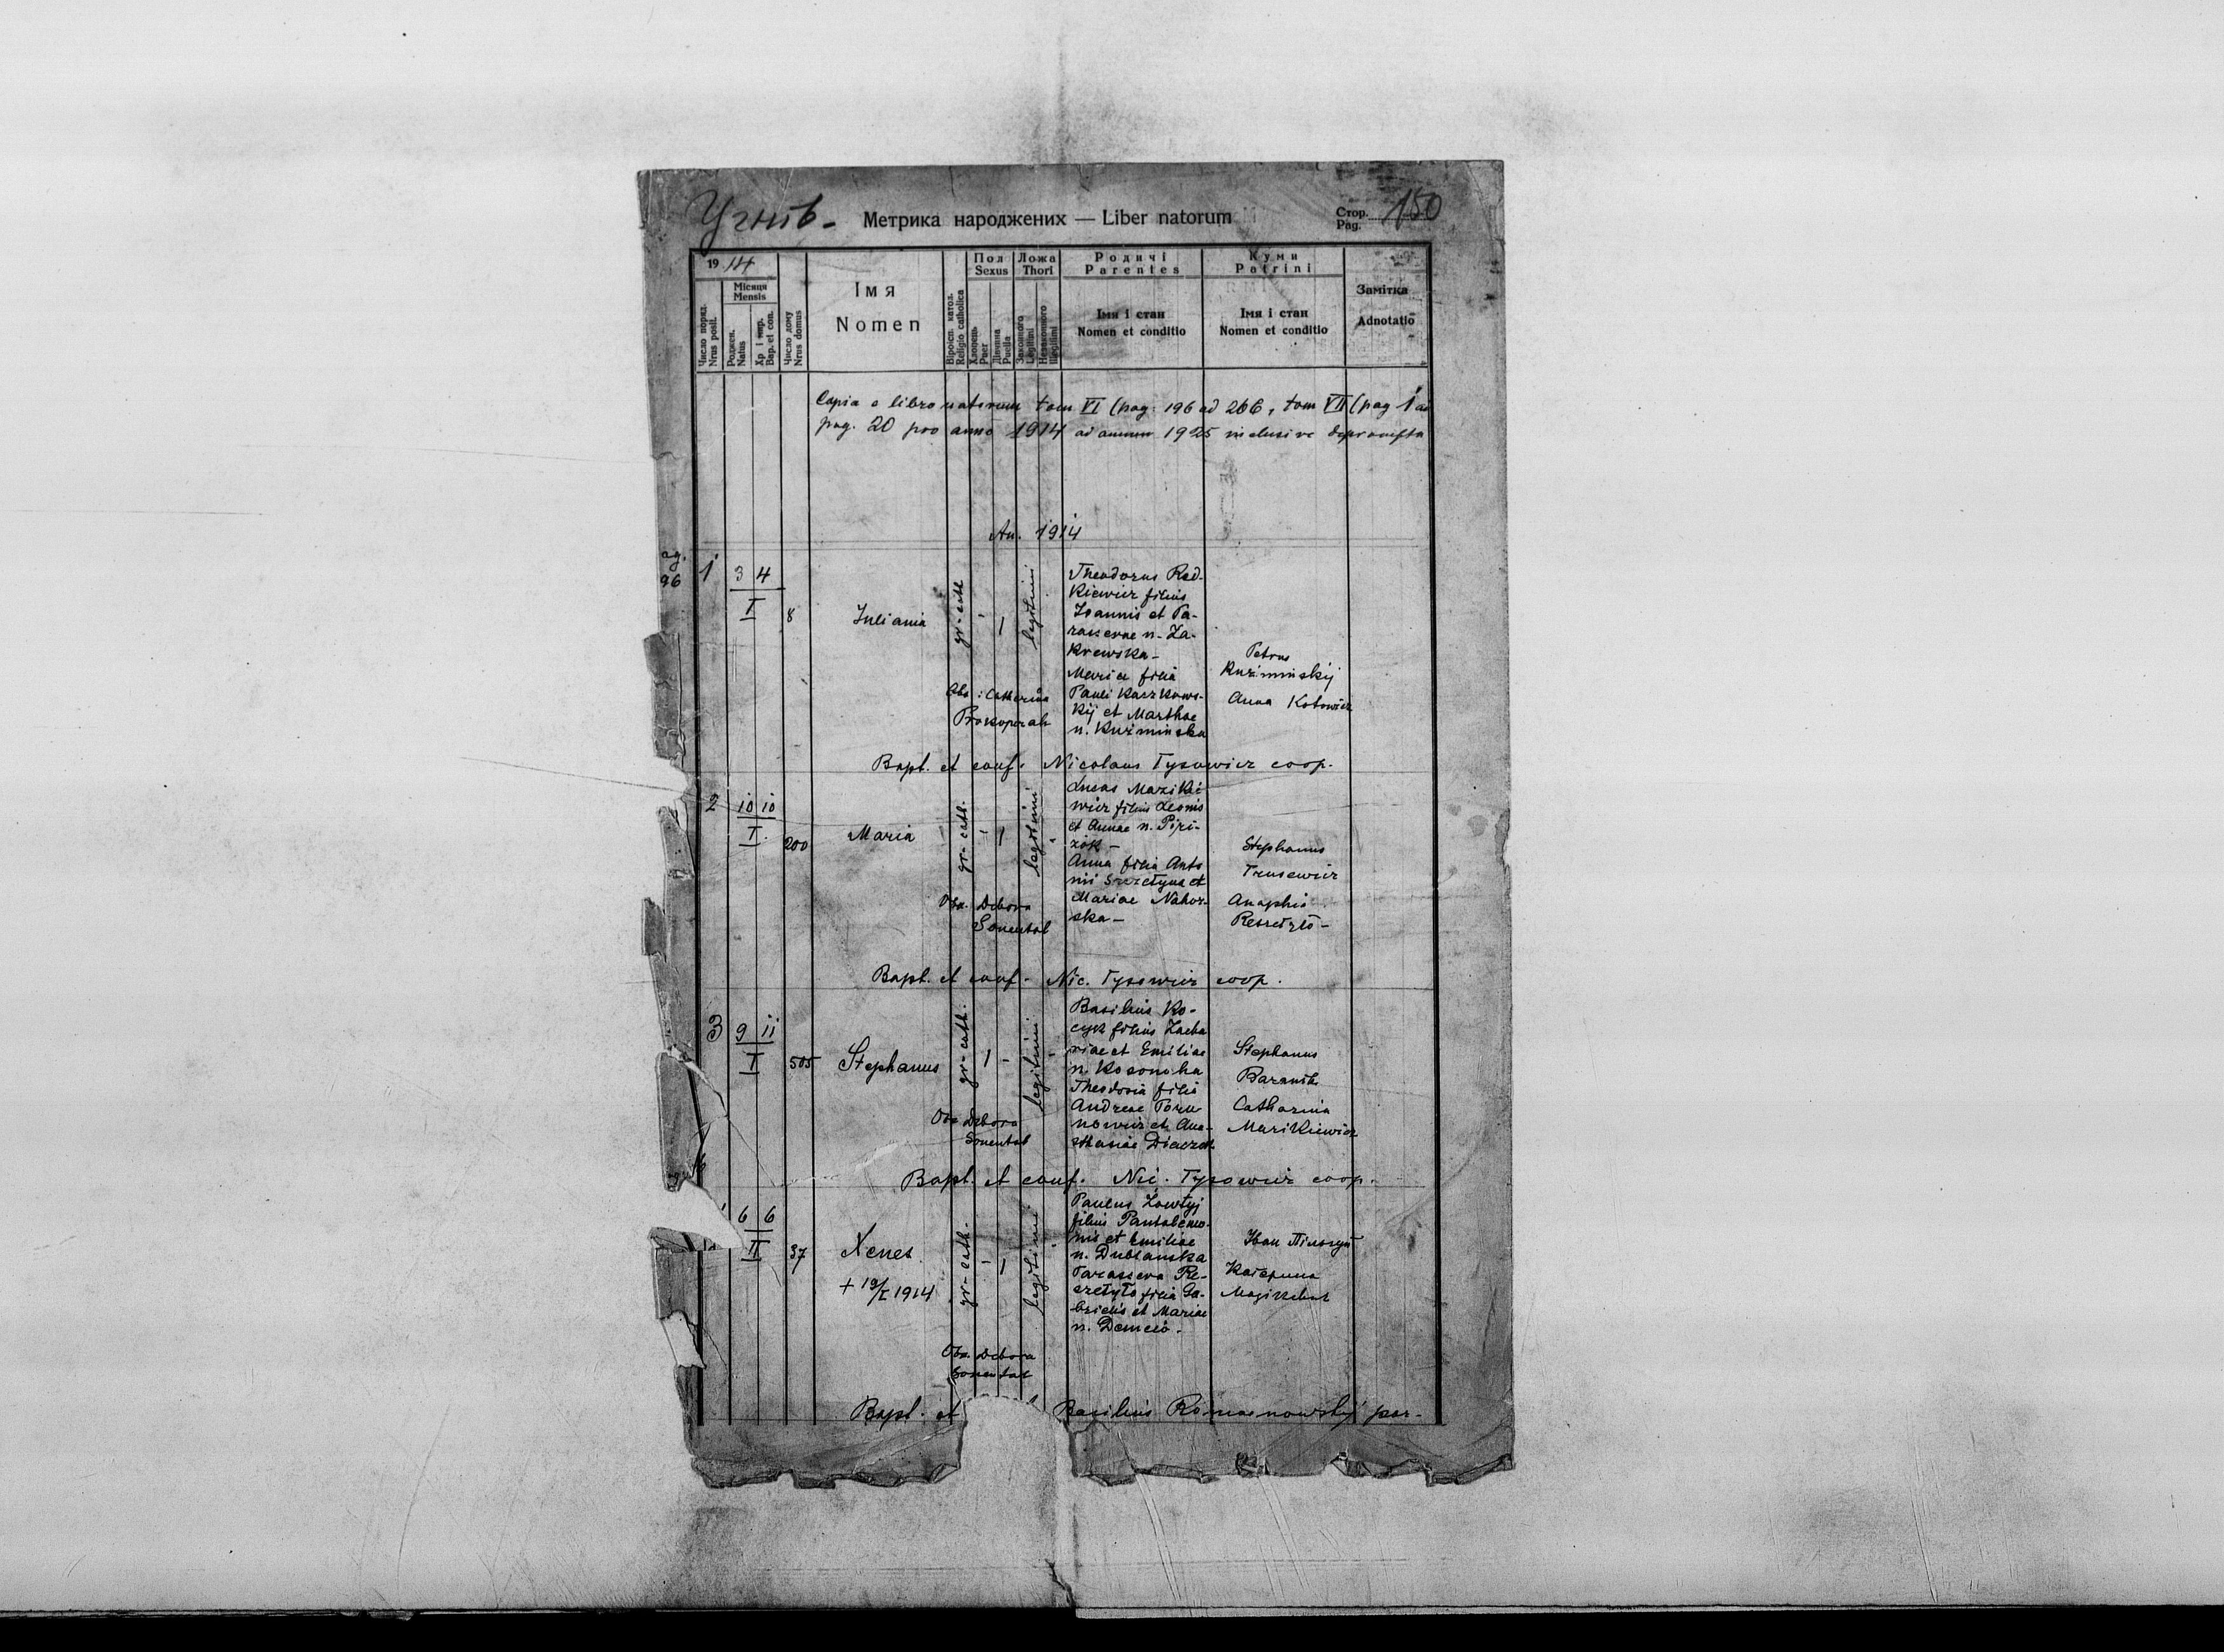 Угнів - Метрика народжених — Liber natorum Стор. Pag. 150
19 14
Місяця
Mensis
Число поряд.
Nrus posit.
Роджен.
Natus
Хр і мир.
Bap. et con.
Число дому
Nrus domus
Імя
Nomen
Віроісп. катол.
Religio catholica
Пол
Sexus
Хлопець
Puer
Дівчина
Puella
Ложа
Thori
Законного
Legitimi
Незаконного
Illegitimi
Родичі
Parentes
Імя і стан
Nomen et conditio
Куми
Patrini
Імя і стан
Nomen et conditio
Замітка
Adnotatio
Copia e libro natorum tom VI (pag. 196 ad 266, tom VII (pag 1 ad
pag. 20 pro anno 1914 ad annum 1925 inclusive deprompta
An. 1914
ag.
96
1 3 4
I
8
Juliania
gr-cath
- 1
legitimi
Theodorus Red-
kiewicz filius
Joannis et Pa-
rascevae n. Za-
krewska -
Maria filia
Pauli Kaczkows-
kij et Marthae
n. Kuźminska
Petrus
Kuźminskij
Anna Kotowicz
Obs: Catharina
Prokopczak
Bapt. et conf. Nicolaus Tysowicz coop.
2 10 10
I
200
Maria
gr-cath.
- 1
legitimi
Lucas Mazikie
wicz filius Leonis
et Annae n. Piri-
zok -
Anna filia Anto
nii Szczetyna et
Mariae Nahor-
ska -
Stephanus
Trusewicz
Anaphia
Reszetyło -
Obs. Debora
Sonental
Bapt. et conf. Nic. Tysowicz coop.
3 9 11
I
505
Stephanus
gr-cath.
1 -
legitimi
Basilius Ko-
cyk filius Zacha
riae et Emiliae
n. Kosonoha
Theodosia filia
Andreae Toru
nowicz et Ana-
sthasiae Diaczok
Stephanus
Baranik
Catharina
Mazikiewicz
Obs Debora
Sonental
Bapt. et conf. Nic. Tysowicz coop.
6 6
II
37
Xenes
+ 19/I 1914
gr-cath.
- 1
legitimi
Paulus Zowtyj
filius Pantalemo-
nis et Emiliae
n. Dublanska
Parasceva Re-
szetyło filia Ga-
brielis et Mariae
n. Demciо.
Іван
Катерина
Obs. Debora
Sonental
Bapt. et Basilius Romanowskij par-